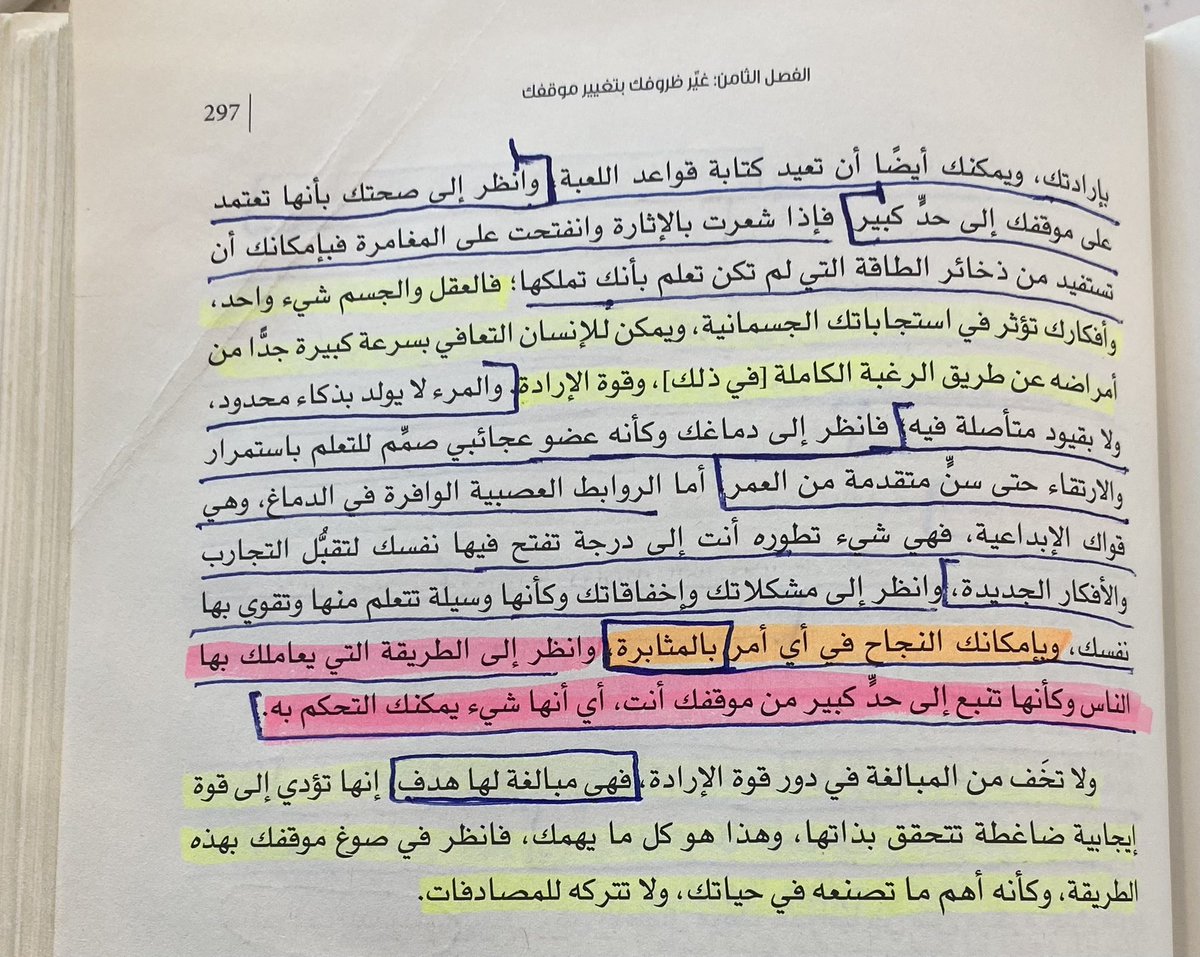 الفصل الثامن: غيِّر ظروفك بتغيير موقفك
297
بإرادتك، ويمكنك أيضًا أن تعيد كتابة قواعد اللعبة. وانظر إلى صحتك بأنها تعتمد
على موقفك إلى حدٍّ كبير. فإذا شعرت بالإثارة وانفتحت على المغامرة فبإمكانك أن
تستفيد من ذخائر الطاقة التي لم تكن تعلم بأنك تملكها؛ فالعقل والجسم شيء واحد،
وأفكارك تؤثر في استجاباتك الجسمانية، ويمكن للإنسان التعافي بسرعة كبيرة جدًّا من
أمراضه عن طريق الرغبة الكاملة [في ذلك]، وقوة الإرادة. والمرء لا يولد بذكاء محدود،
ولا بقيود متأصلة فيه، فانظر إلى دماغك وكأنه عضو عجائبي صمِّم للتعلم باستمرار
والارتقاء حتى سنٍّ متقدمة من العمر. أما الروابط العصبية الوافرة في الدماغ، وهي
قواك الإبداعية، فهي شيء تطوره أنت إلى درجة تفتح فيها نفسك لتقبُّل التجارب
والأفكار الجديدة، وانظر إلى مشكلاتك وإخفاقاتك وكأنها وسيلة تتعلم منها وتقوي بها
نفسك، وبإمكانك النجاح في أي أمر بالمثابرة، وانظر إلى الطريقة التي يعاملك بها
الناس وكأنها تنبع إلى حدٍّ كبير من موقفك أنت، أي أنها شيء يمكنك التحكم به.
ولا تخَف من المبالغة في دور قوة الإرادة، فهي مبالغة لها هدف. إنها تؤدي إلى قوة
إيجابية ضاغطة تتحقق بذاتها، وهذا هو كل ما يهمك، فانظر في صوغ موقفك بهذه
الطريقة، وكأنه أهم ما تصنعه في حياتك، ولا تتركه للمصادفات.